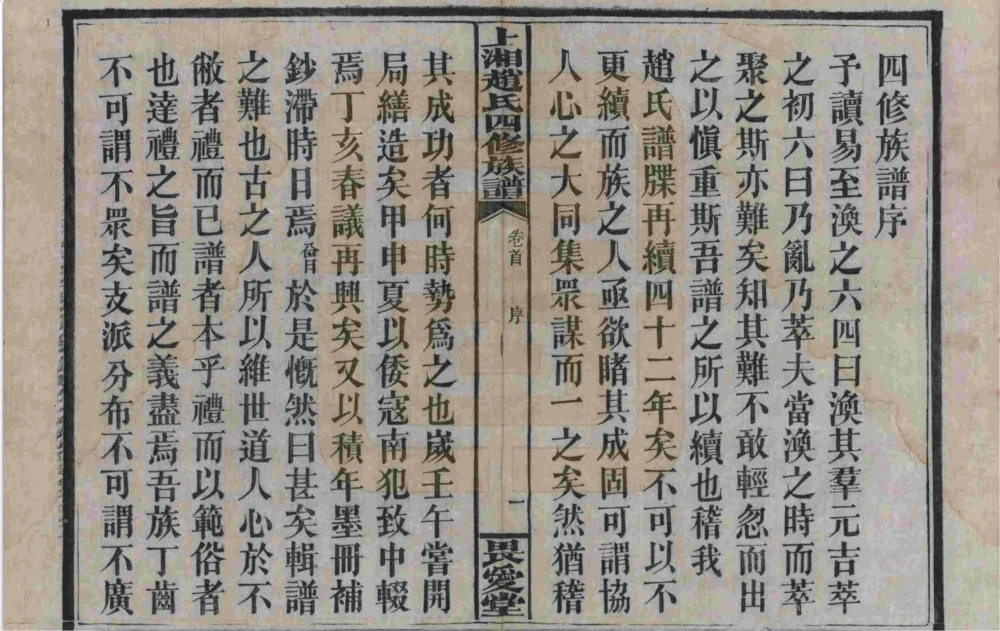 四修族譜序
予讀易至渙之六四曰渙其羣元吉萃
之初六曰乃亂乃萃夫當渙之時而萃
聚之斯亦難矣知其難不敢輕忽而出
之以愼重斯吾譜之所以續也稽我
趙氏譜牒再續四十二年矣不可以不
更續而族之人亟欲睹其成固可謂協
人心之大同集眾謀而一之矣然猶稽
上湘趙氏四修族譜
卷首
序
一
畏愛堂
其成功者何時勢爲之也歲壬午嘗開
局繕造矣甲申夏以倭寇南犯致中輟
焉丁亥春議再興矣又以積年墨冊補
鈔滯時日焉僉曰於是慨然曰甚矣輯譜
之難也古之人所以維世道人心於不
敝者禮而已譜者本乎禮而以範俗者
也達禮之旨而譜之義盡焉吾族丁齒
不可謂不眾矣支派分布不可謂不廣